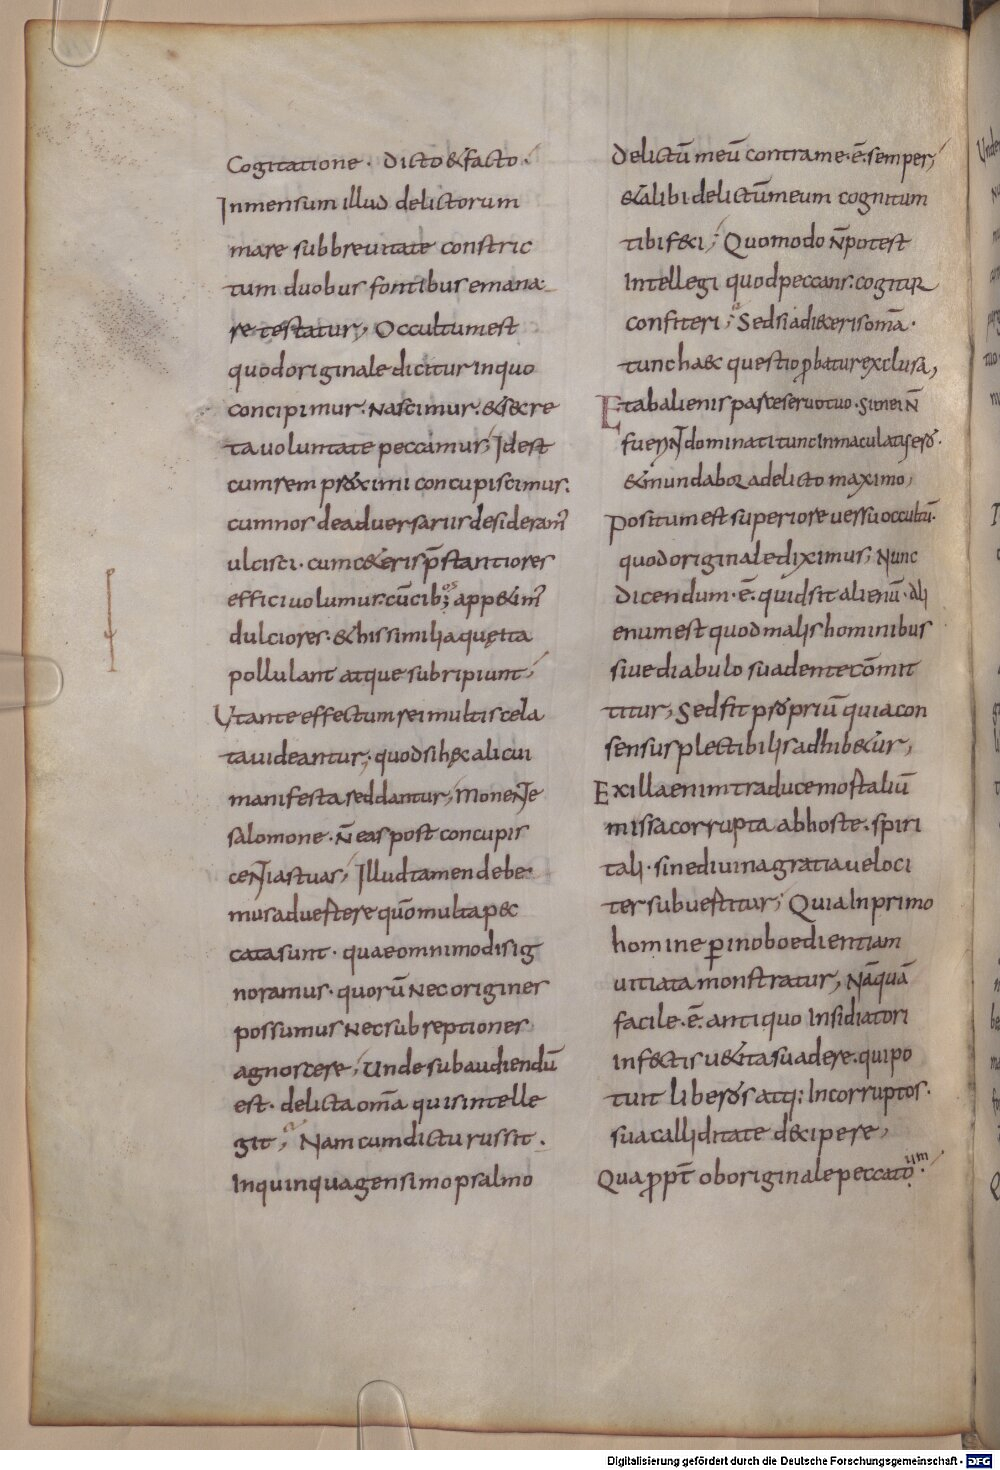 Cogitatione · dicto & facto ·
Inmensum illud delictorum
mare sub breuitate constric
tum duobus fontibus emana
re testatur; Occultum est
quod originale dicitur in quo
concipimur · Nascimur · & secre
ta uoluntate peccamus; Id est
cum rem proximi concupiscimus ·
cum nos de aduersariis desideram̄
ulcisci · cum ceteris p̄stantiores
effici uolumus · cū cib;os app&im̄
dulciores · & his similia quę ita
pollulant atque subripiunt;
Ut ante effectum rei multis cela
ta uideantur; quod si hęc alicui
manifesta reddantur; Monente
salomone · N̄ eas post concupis
centias tuas; Illud tamen debe
mus aduertere quō multa pec
cata sunt · quae omnimodis ig
noramus · quorū nec origines
possumus nec subreptiones
agnoscere; Unde subaudiendū
est · delicta om̄a quis intelle
git; Nam cum dicturus sit ·
In quinquagensimo psalmo
delictū meū contra me · ē · semper;
& alibi delictū meum cognitum
tibi feci; Quomodo n̄ potest
Intellegi quod peccans · cogitur
confiteri; Sed si adieceris om̄a ·
tunc haec questio ꝓbatur exclusa;
Et ab alienis parce seruo tuo · Si mei n̄
fuerint dominati tunc inmaculatus erō ·
& mundabor a delicto maximo;
Positum est superiore uersu occultū ·
quod originale diximus; Nunc
dicendum · ē · quid sit alienū · Ali
enum est quod malis hominibus
siue diabulo suadente cōmit
titur; Sed fit propriū quia con
sensus plectibilis adhibetur;
Ex illa enim traduce mortaliū
missa corrupta ab hoste · spiri
tali · sine diuina gratia ueloci
ter subuertitur; Quia In primo
homine ꝑ inoboedientiam
uitiata monstratur; Nāquā
facile · ē · antiquo Insidiatori
infectis uetita suadere · qui po
tuit liberos atq; Incorruptos ·
sua calliditate decipere;
Qua ꝓpt̄ ob originale peccatō um ·
Digitalisierung gefördert durch die Deutsche Forschungsgemeinschaft - DFG